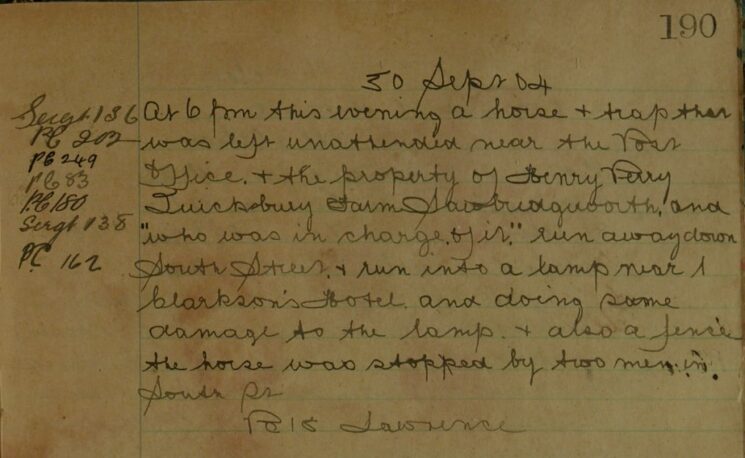 190
30 Sept 04
Sergt 136 At 6 pm this evening a horse + trap that
PC 202 was left unattended near the Post
PC 249 Office, + the property of Henry Perry
PC 83
PC 180 Quicksbury Farm Sawbridgworth, and
Sergt 138 "who was in charge, of it," run away down
PC 162 South Street, + run into a lamp near
Clarkson's Hotel. and doing some
damage to the lamp. + also a fence
the horse was stopped by two men. in.
South St
PC 15 Lawrence